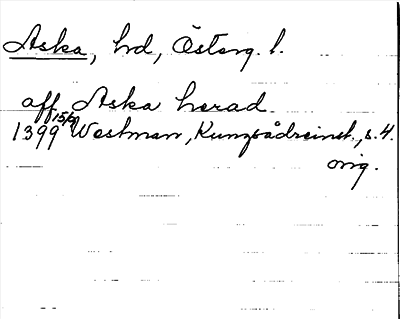 Aska, hd, Österg. l.
aff Aska herad.
1399 15/9 Westman, Kungsådreinst., s. 4.
orig.